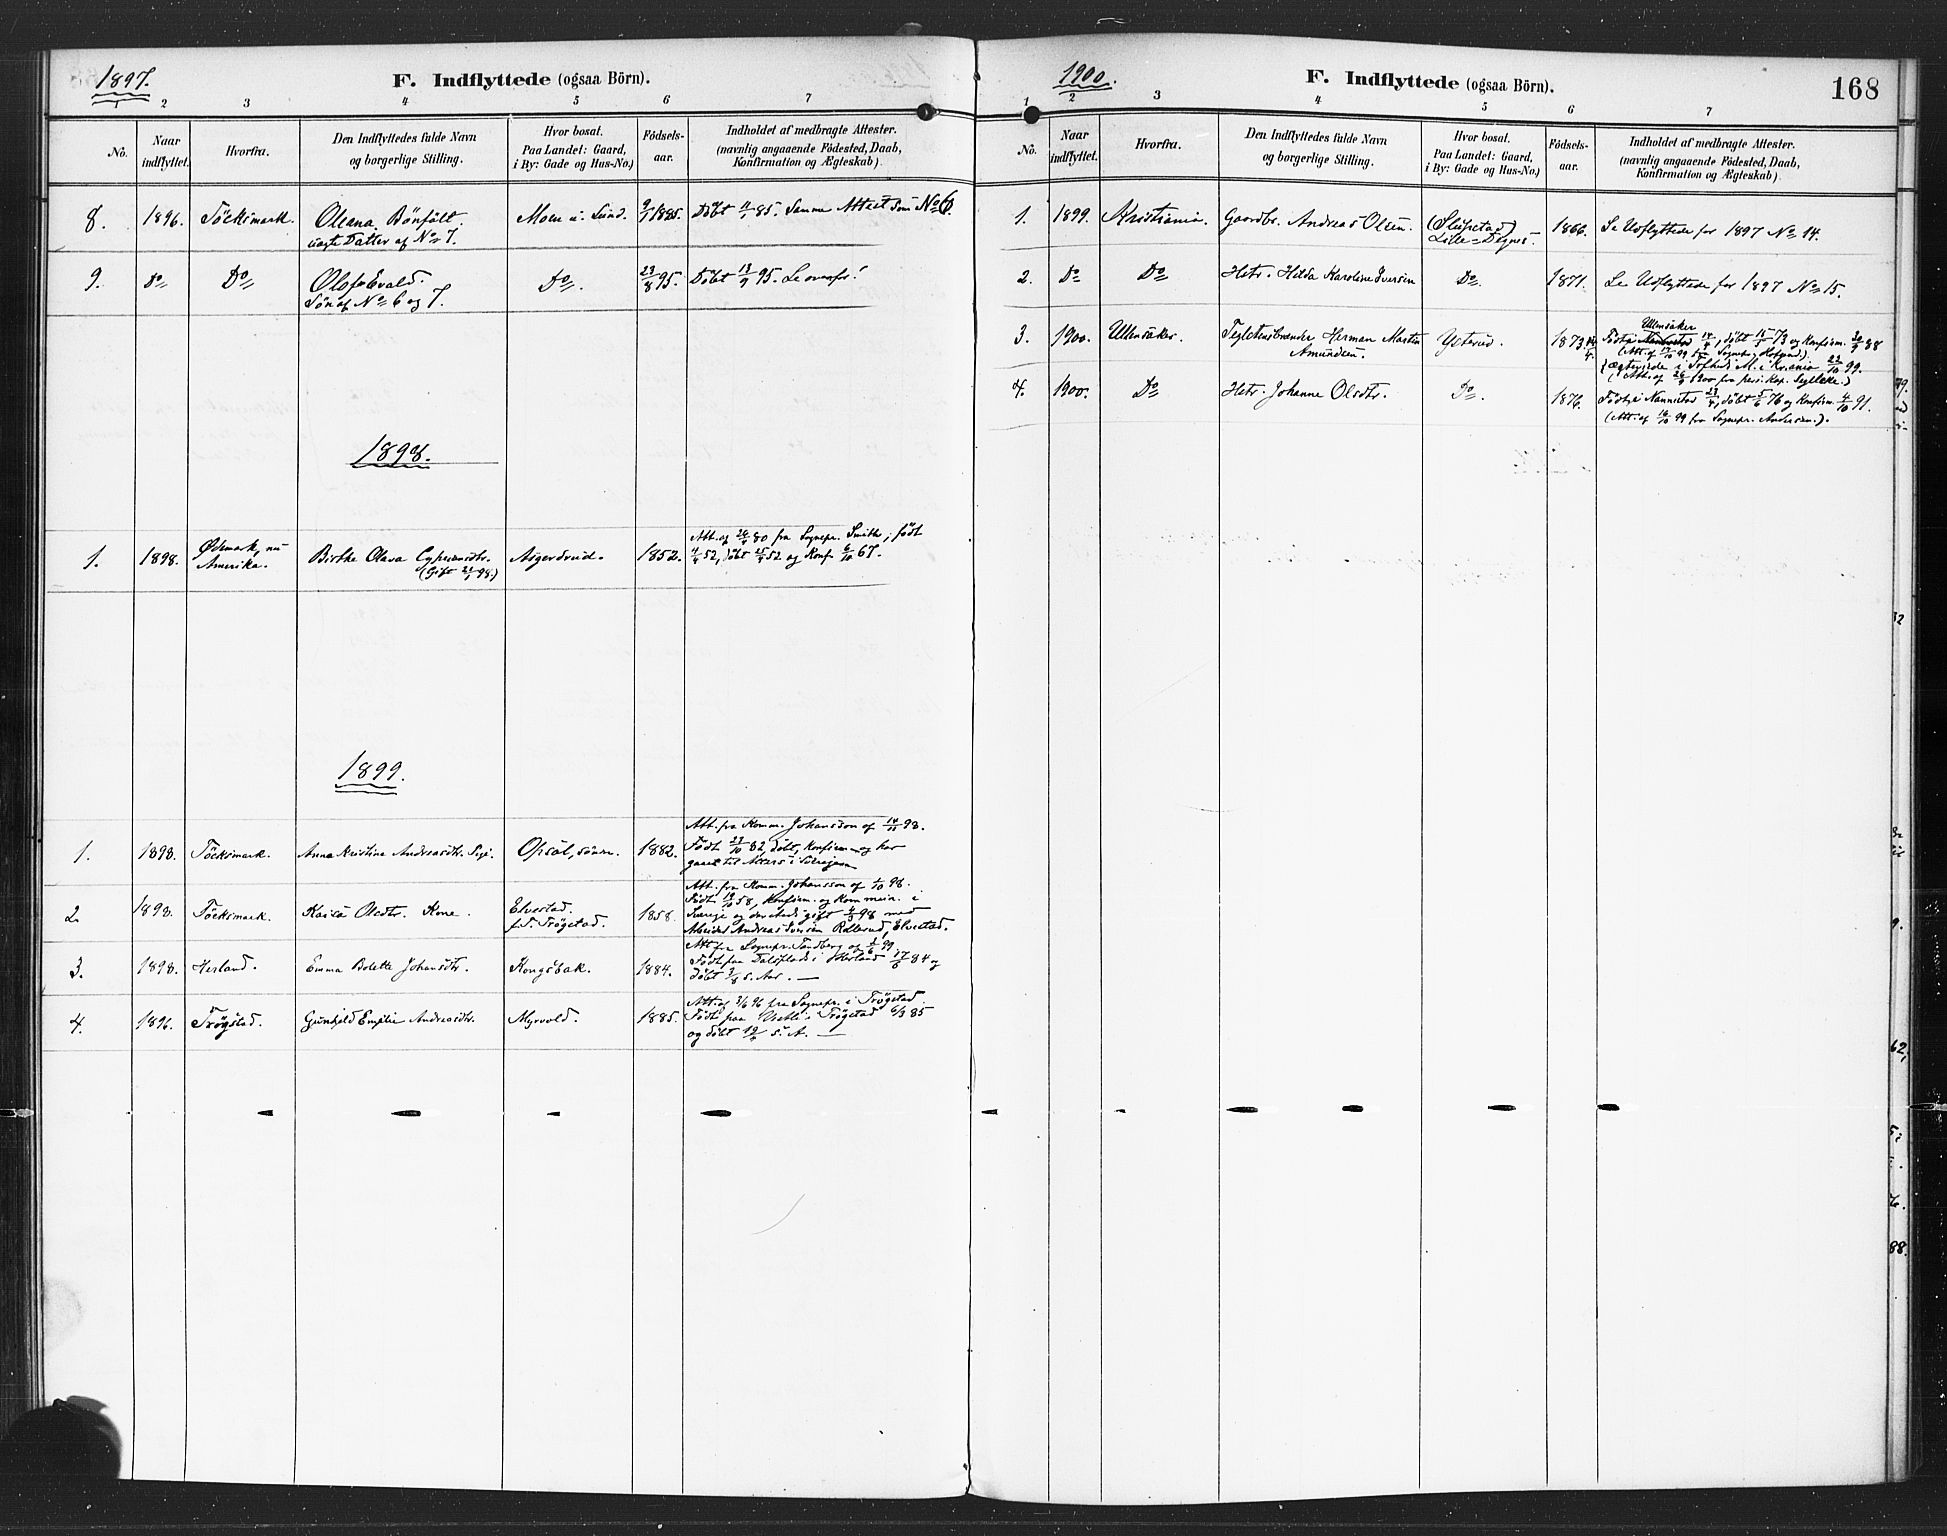 1897.
F. Indflyttede (ogsaa Börn).
1 2 3 4 5 6 7
No.
Naar indflyttet.
Hvorfra.
Den Indflyttedes fulde Navn og borgerlige Stilling.
Hvor bosat. Paa Landet: Gaard, i By: Gade og Hus-No.)
Födsels-aar.
Indholdet af medbragte Attester. (navnlig angaaende Födested, Daab, Konfirmation og Ægteskab)
8. 1896. Töcksmark. Oleana Bönfält. Moen u. Lund. 9/1 1885. Döbt 11/1 85. Samme Attest som No 6.
ægte Datter af No 7.
9. Do Do Olof Evald. Do. 23/8 95. Döbt 13/9 95. Se ovenfor!
Sön af No 6 og 7.
1898.
1. 1898. Ödemark, nu Amerika. Birthe Olava Asgerdrud. 1852. Att. af 80 fra Sognepr. Smith, född
(Gift 98.) 4/4 52, döbt 25/4 52 og Konf. 6/10 67.
1899.
1. 1898. Töcksmark. Anna Kristine Andreasdtr. Opsal, söndre. 1882. Att. fra Komm. Johansson af 14/11 98.
Födt 23/10 82, döbt, konfirm. og har
gaaet til Alters i Sverige
2. 1898. Töcksmark. Kaisa Olsdtr. Kone. Elvestad. f. T. Trögstad. 1858. Att. fra Komm. Johansson af 1/10 98.
Födt 19/10 58, konfirm. og kommun. i
Sverige og dersteds gift 98 med
Arbeider Andreas Iversen Elvestad.
3. 1898. Herland. Emma Bolette Johansdtr. Kongsbak. 1884. Att. fra Sognepr. Sandberg af 99.
Födt paa i Herland 17/6 84 og
döbt 3/8 s. Aar. —
4. 1896. Trögstad. Gunhild Emilie Andreasdtr. Myrvold. 1885. Att. af 3/6 96 fra Sognepr. i Trögstad.
Födt paa i Trögstad 6/3 85
og döbt s. A. —
1900.
F. Indflyttede (ogsaa Börn).
168
1 2 3 4 5 6 7
No.
Naar indflyttet.
Hvorfra.
Den Indflyttedes fulde Navn og borgerlige Stilling.
Hvor bosat. Paa Landet: Gaard, i By: Gade og Hus-No.)
Födsels-aar.
Indholdet af medbragte Attester. (navnlig angaaende Födested, Daab, Konfirmation og Ægteskab)
1. 1899. Kristiania. Gaardbr. Andreas Olsen. (Slupstad) Lille-Degnes. 1866. Se Udflyttede for 1897 No 14.
2. Do Do Hstr. Hilda Karoline Iversen Do. 1871. Se Udflyttede for 1897 No 15.
3. 1900. Ullensaker. Teglstensbrænder Herman Martin Amundsen. Ysterud. 1873 Ullensaker
Födt i 14/4, döbt 73 og konfirm. 88
(Att. af 99 fra Sognepr. ).
(ægteviede i M. i Kr.ania 22/10 99.
(Att. af 1900 fra pers. Kap. .)
4. 1900. Do Hstr. Johanne Olsdtr. Do. 1876. Födt i Nannestad 23/4, döbt 5/6 76 og konfirm. 4/10 91.
(Att. af 16/10 99 fra Sognepr. Andersen.).